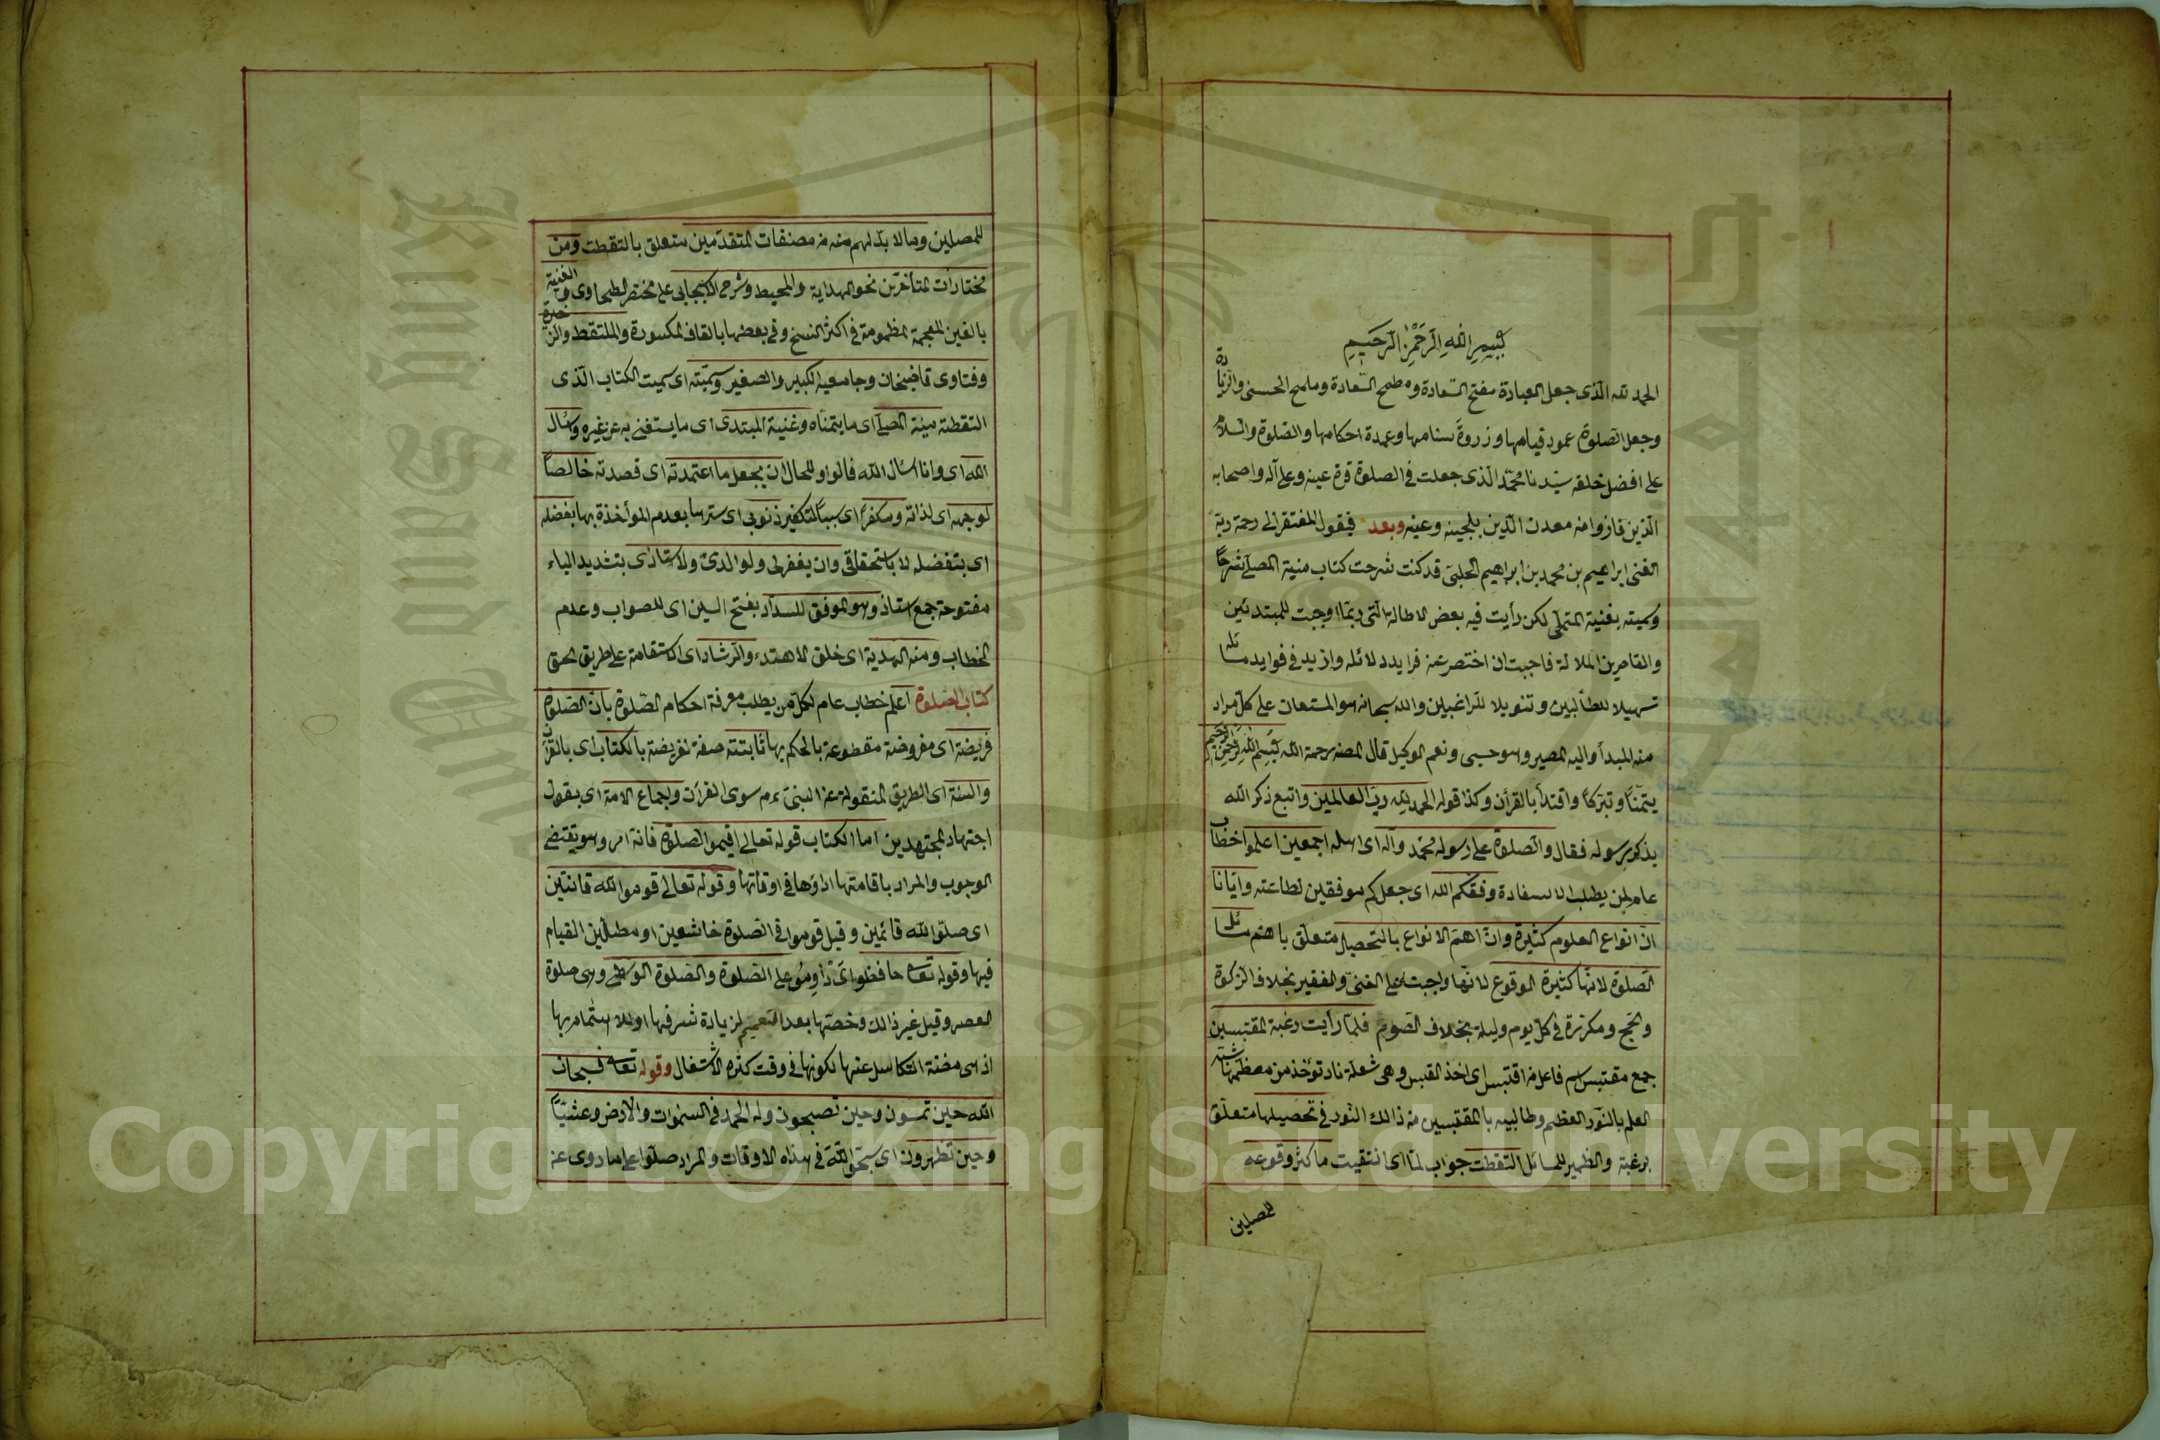 بسم الله الرحمن الرحيم
الحمد لله الذى جعل العبادة مفتح السعادة ومطمح السعادة وملمح الحسنى والزيادة
وجعل الصلوة عمود قيامها وزروة سنامها وعمدة احكامها والصلوة والسلام
على افضل خلقه سيدنا محمد الذى جعلت فى الصلوة قرة عينه وعلى آله واصحابه
الذين فازوا من معدن الدين بلجينه وعينه وبعد فيقول المفتقر الى رحمة ربه
الغنى ابراهيم بن محمد بن ابراهيم الحلبى قد كنت شرحت كتاب منية المصلى شرحا
وسميته بغنية المتملى لكن رأيت فيه بعض الاطالة التى ربما اوجبت للمبتدئين
والقاصرين الملالة فاحببت ان اختصر عنه فرايد دلائله وازيد فى فوايد مسائله
تسهيلا للطالبين وتنويلا للراغبين والله سبحانه هو المستعان على كل مراد
منه المبدأ واليه المصير وهو حسبى ونعم الوكيل قال المصنف رحمة الله بسم الله الرحمن الرحيم
يتمنا وتبركا واقتدأ بالقرآن وكذا قوله الحمد لله رب العالمين واتبع ذكر الله
بذكر رسوله فقال والصلوة على رسوله محمد وآله اى اهله اجمعين اعلموا خطاب
عام لمن يطلب الاستفادة وفقكم الله اى جعلكم موفقين لطاعته وايانا
ان انواع العلوم كثيرة وان اهم الانواع بالتحصيل متعلق باهم مسائل
الصلوة لانها كثيرة الوقوع لانها واجبة على الغنى والفقير بخلاف الزكوة
والحج ومكررة فى كل يوم وليلة بخلاف الصوم فلما رأيت رغبة المقتبسين
جمع مقتبس اسم فاعل من اقتبس اى اخذ القبس وهى شعلة نار تؤخذ من معظمها شبه
العلم بالنور العظيم وطالبيه بالمقتبسين من ذالك النور فى تحصيلها متعلق
برغبة والضمير للمسائل التقطت جواب لما اى انتقيت ما كثر وقوعه
للمصلين
للمصلين وما لا بد لهم منه من مصنفات المتقدمين متعلق بالتقطت ومن
مختارات المتأخرين نحو الهداية والمحيط وشرح الاسبيجابى على مختصر الطحاوى والغنية
بالغين المعجمة المضمومة فى اكثر النسخ وفى بعضها بالقاف المكسورة والملتقط والذخيرة
وفتاوى قاضيخان وجامعيه الكبير والصغير وسميته اى سميت الكتاب الذى
التقطته منية المصلى اى ما يتمناه وغنية المبتدى اى ما يستغنى به عن غيره واسئال
الله اى وانا اسئال الله فالواو للحال ان يجعل ما اعتمدته اى قصدته خالصا
لوجهه اى لذاته ومكفرا اى سببا لتكفير ذنوبى اى سترها بعدم المؤاخذة بها بفضله
اى بتفضله لا باستحقاقى وان يغفر لى ولوالدى ولاستاذى بتشديد الياء
مفتوحة جمع استاذ وهو الموفق للسداد بفتح السين اى للصواب وعدم
الخطاء ومنه الهداية اى خلق الاهتداء والرشاد اى الاستقامة على طريق الحق
كتاب الصلوة اعلم خطاب عام لكل من يطلب معرفة احكام الصلوة بان الصلوة
فريضة اى مفروضة مقطوعة بالحكم بها ثابتة صفة لفريضة بالكتاب اى بالقرآن
والسنة اى الطريق المنقولة عن النبى عم سوى القرآن واجماع الامة اى بقول
اجتهاد المجتهدين اما الكتاب قوله تعالى اقيموا الصلوة فانه امر وهو يقتضى
الوجوب والمراد باقامتها اداؤها فى اوقاتها وقوله تعالى قوموا لله قانتين
اى صلوا لله قائمين وقيل قوموا فى الصلوة خاشعين او مطيلين القيام
فيها وقوله تعالى حافظوا اى داوموا على الصلوة والصلوة الوسطى وهى صلوة
العصر وقيل غير ذالك وخصها بعد التعميم لزيادة شرفها او للاهتمام بها
اذ هى مضنة التكاسل عنها لكونها فى وقت كثرة الاشتغال وقوله تعالى فسبحان
الله حين تمسون وحين تصبحون وله الحمد فى السموات والارض وعشيا
وحين تظهرون اى سبحوا الله فى هذه الاوقات والمراد صلوا على ما روى عن